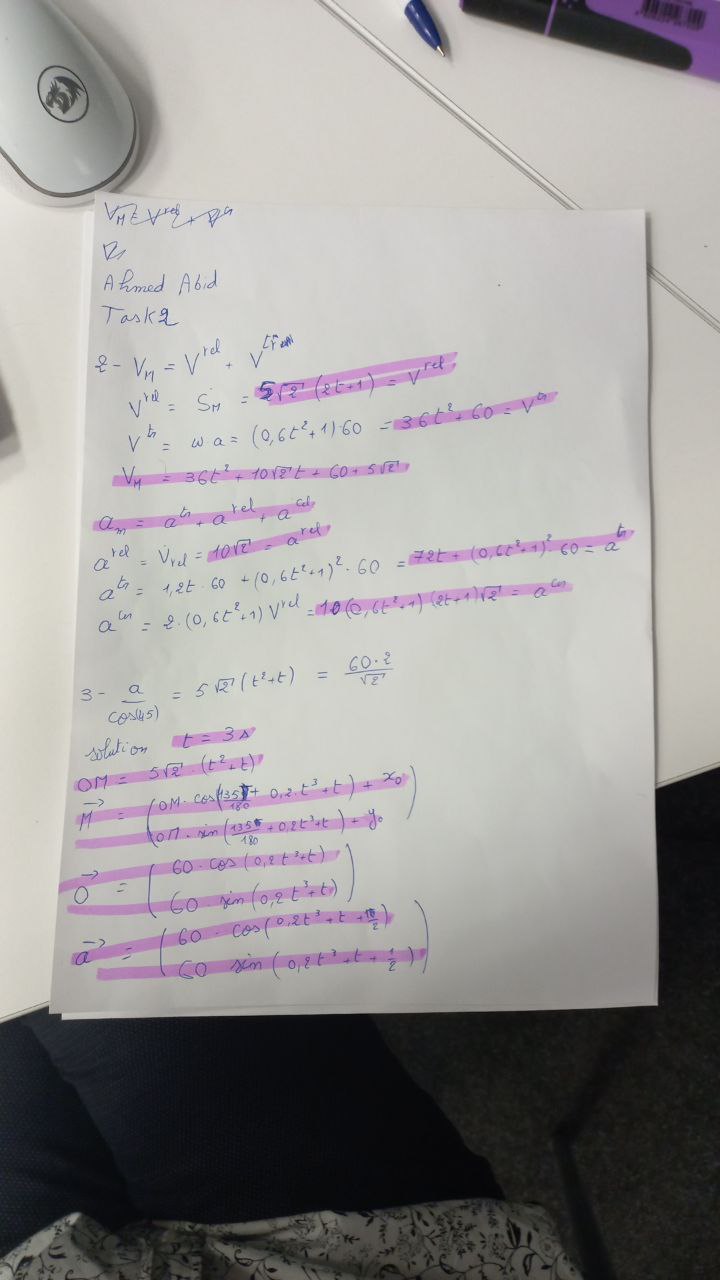 V_M = V^rel + V^tr
Ahmed Abid
Task 2
2- V_M = V^rel + V^tr
V^rel = Ṡ_M = 5√2 (2t+1) = V^rel
V^tr = ω·a = (0,6t²+1)·60 = 36t²+60 = V^tr
V_M = 36t² + 10√2 t + 60 + 5√2
a_m = a^tr + a^rel + a^col
a^rel = V̇_rel = 10√2 = a^rel
a^tr = 1,2t·60 + (0,6t²+1)²·60 = 72t + (0,6t²+1)²·60 = a^tr
a^cor = 2·(0,6t²+1) V^rel = 10(0,6t²+1)(2t+1)√2 = a^cor
3- a/cos(45) = 5√2 (t²+t) = 60·2/√2
solution t = 3s
OM = 5√2·(t²+t)
M⃗ = (OM·cos(135π/180 + 0,2·t³+t) + x₀
OM·sin(135π/180 + 0,2t³+t) + y₀)
O⃗ = (60·cos(0,2t³+t)
60 sin(0,2t³+t))
a⃗ = (60·cos(0,2t³+t+π/2)
60 sin(0,2t³+t+1/2))